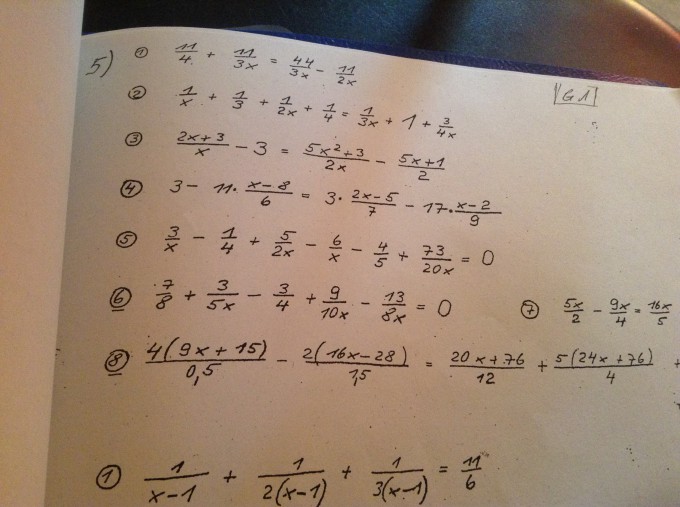 5) ① 11/4 + 11/3x = 44/3x - 11/2x
|G1|
② 1/x + 1/3 + 1/2x + 1/4 = 1/3x + 1 + 3/4x
③ (2x+3)/x - 3 = (5x²+3)/2x - (5x+1)/2
④ 3 - 11 · (x-8)/6 = 3 · (2x-5)/7 - 17 · (x-2)/9
⑤ 3/x - 1/4 + 5/2x - 6/x - 4/5 + 73/20x = 0
⑥ 7/8 + 3/5x - 3/4 + 9/10x - 13/8x = 0 ⑦ 5x/2 - 9x/4 = 16x/5
⑧ 4(9x+15)/0,5 - 2(16x-28)/1,5 = (20x+76)/12 + 5(24x+76)/4 +
① 1/(x-1) + 1/2(x-1) + 1/3(x-1) = 11/6